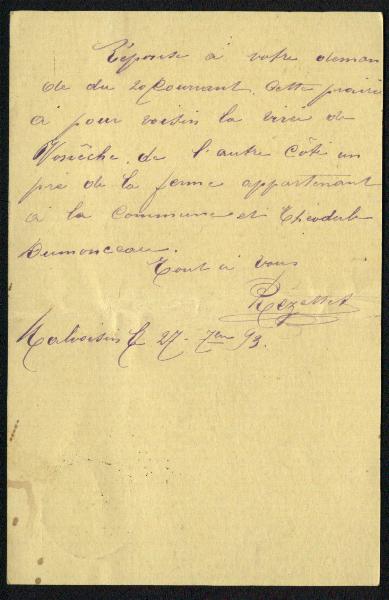 Réponse à votre deman
de du 20 Courrant. Cette prairie
à pour voisin la virée de
Vonêche, de l'autre côté un
pré de la ferme appartenant
à la Commune et Théodule
Dumonceau.
Tout à vous
Rézette
Malvoisin le 27. 7bre 93.